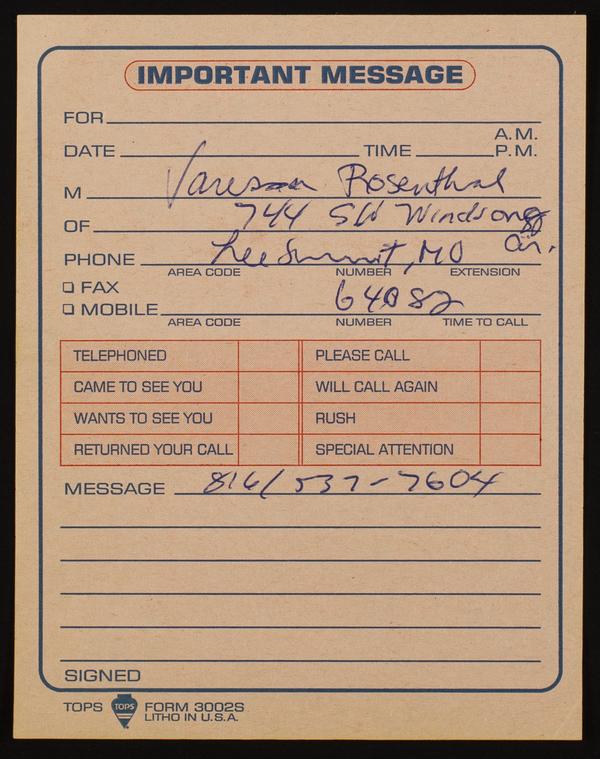 IMPORTANT MESSAGE
FOR
A.M.
DATE TIME P.M.
M Vanessa Rosenthal
OF 744 SW Windsong
PHONE Lee Summit, MO Dr.
AREA CODE NUMBER EXTENSION
FAX 64082
MOBILE
AREA CODE NUMBER TIME TO CALL
TELEPHONED PLEASE CALL
CAME TO SEE YOU WILL CALL AGAIN
WANTS TO SEE YOU RUSH
RETURNED YOUR CALL SPECIAL ATTENTION
MESSAGE 816/537-7604
SIGNED
TOPS TOPS FORM 3002S
LITHO IN U.S.A.